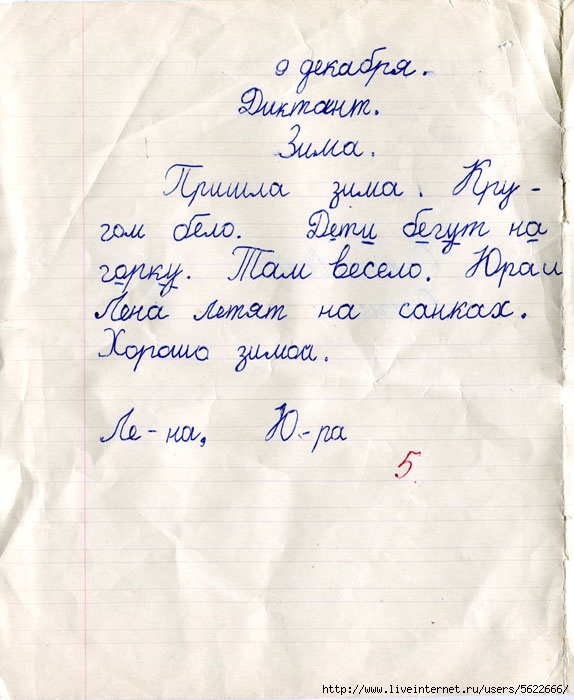 9 декабря.
Диктант.
Зима.
Пришла зима. Кру-
гом бело. Дети бегут на
горку. Там весело. Юра и
Лена летят на санках.
Хорошо зимой.
Ле-на, Ю-ра
5.
http://www.liveinternet.ru/users/5622666/